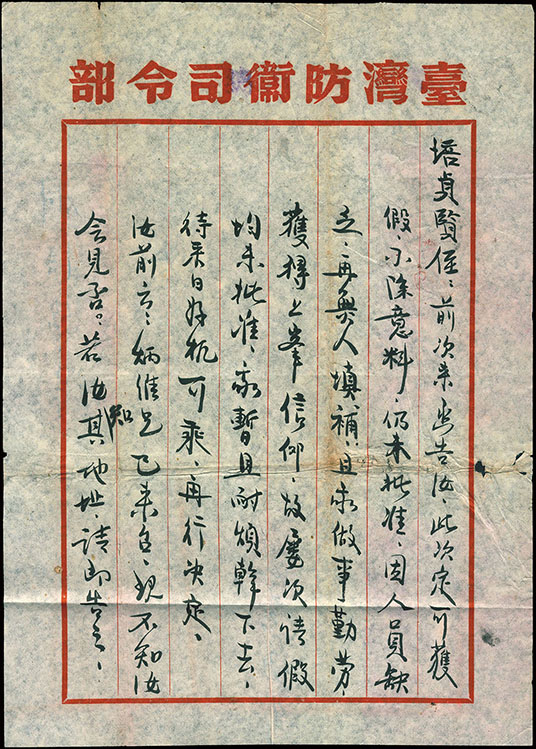 臺灣防衞司令部
培貞賢侄：前次來函告汝，此次定可獲
假，不除意料，仍未批准，因人員缺
乏，再無人填補，且我做事勤勞，
獲得上峯信仰，故屢次請假
均未批准，我暫且耐煩幹下去，
待來日好机可乘，再行决定，
汝前云，炳維兄已來台，現不知汝
会見否。若汝知其地址，請即告之，